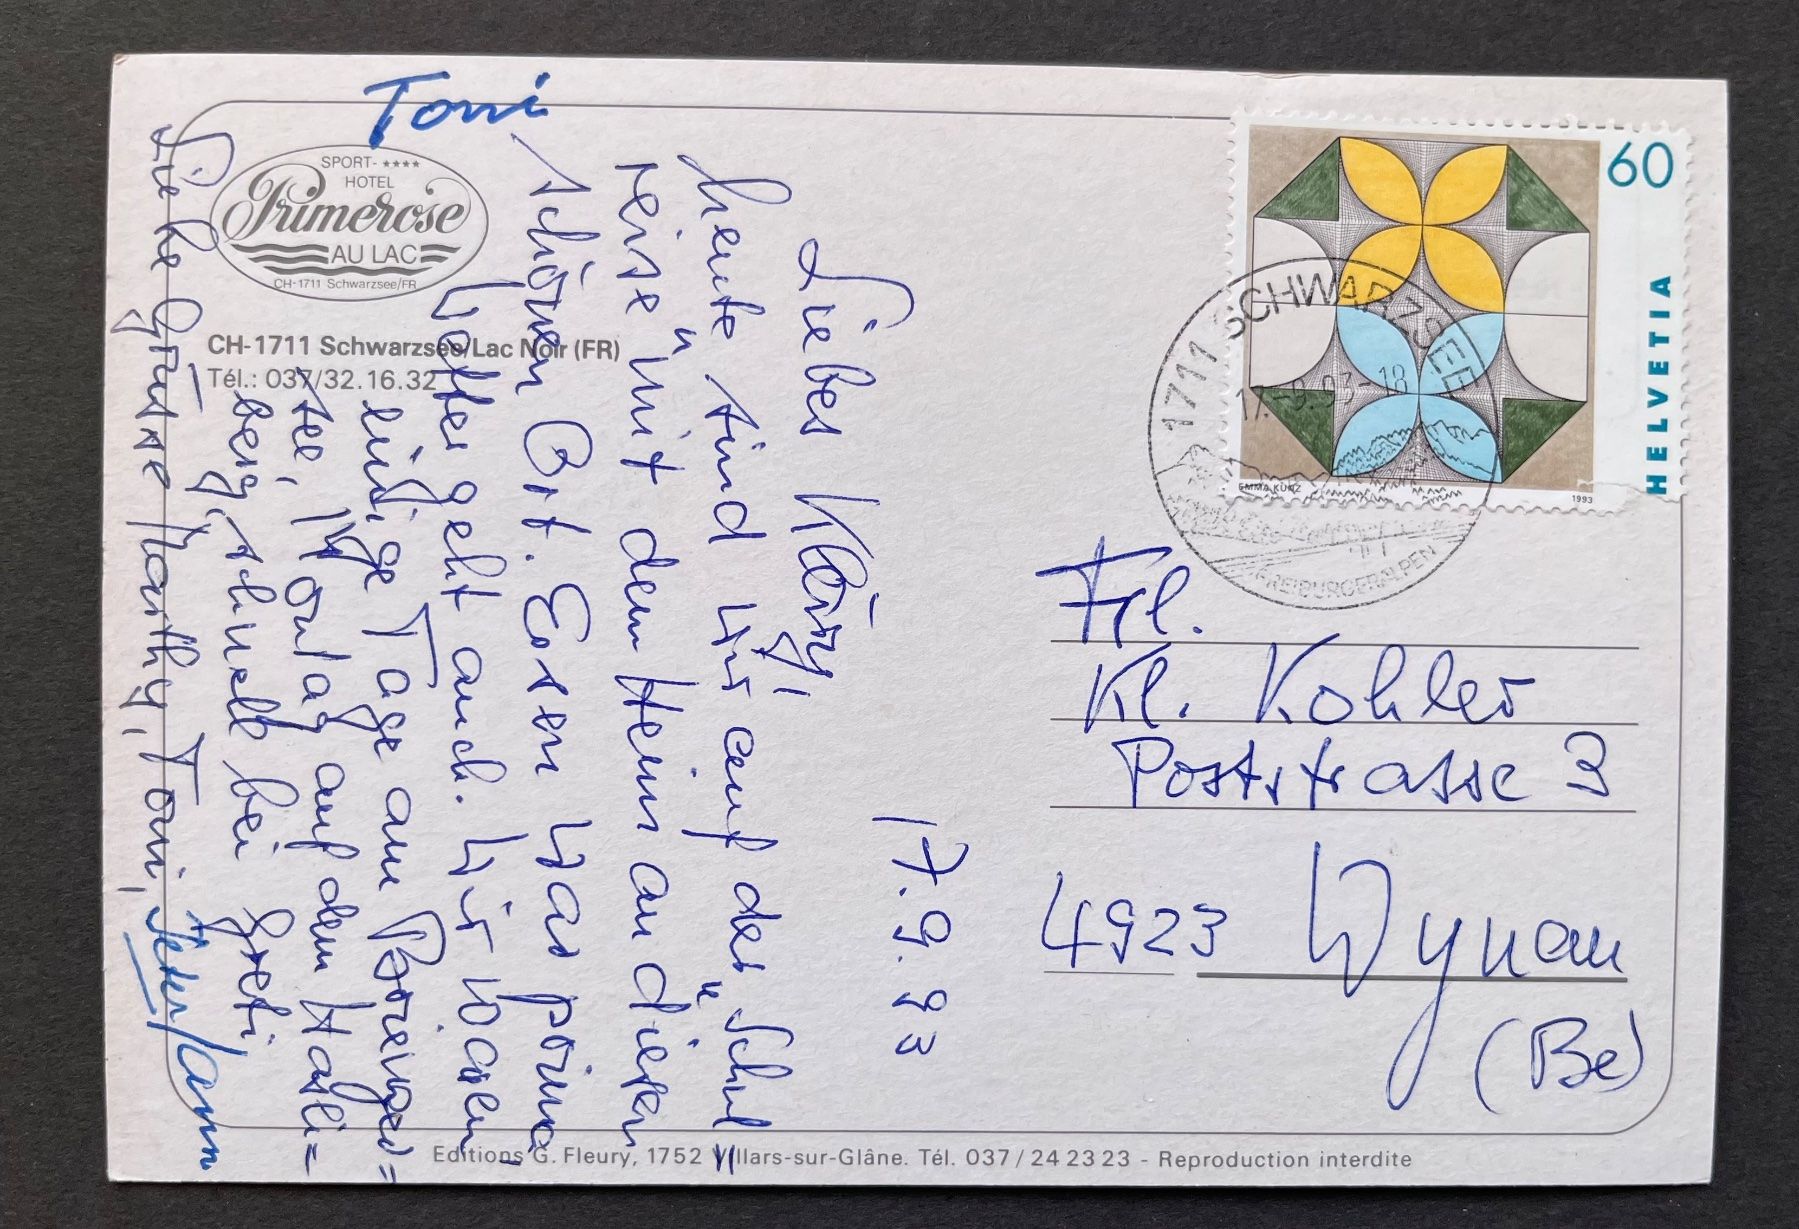 Toni
SPORT- ****
HOTEL
Primerose
AU LAC
CH-1711 Schwarzsee/FR
CH-1711 Schwarzsee/Lac Noir (FR)
Tél.: 037/32.16.32
17.9.93
Liebes Kläry,
heute sind wir auf der "Schul=
reise" mit dem Heim an diesen
schönen Ort. Essen war prima
Wetter geht auch. Wir waren
einige Tage am Brienzer=
see, Montag auf dem Hasli=
berg, schnell bei Greti
Liebe Grüsse Marthy, Toni,
60
HELVETIA
EMMA KUNZ
1993
1711 SCHWARZSEE
17.-9.93-18
FREIBURGERALPEN
Frl.
Kl. Kohler
Poststrasse 3
4923 Wynau
(Be)
Editions G. Fleury, 1752 Villars-sur-Glâne. Tél. 037/24 23 23 - Reproduction interdite